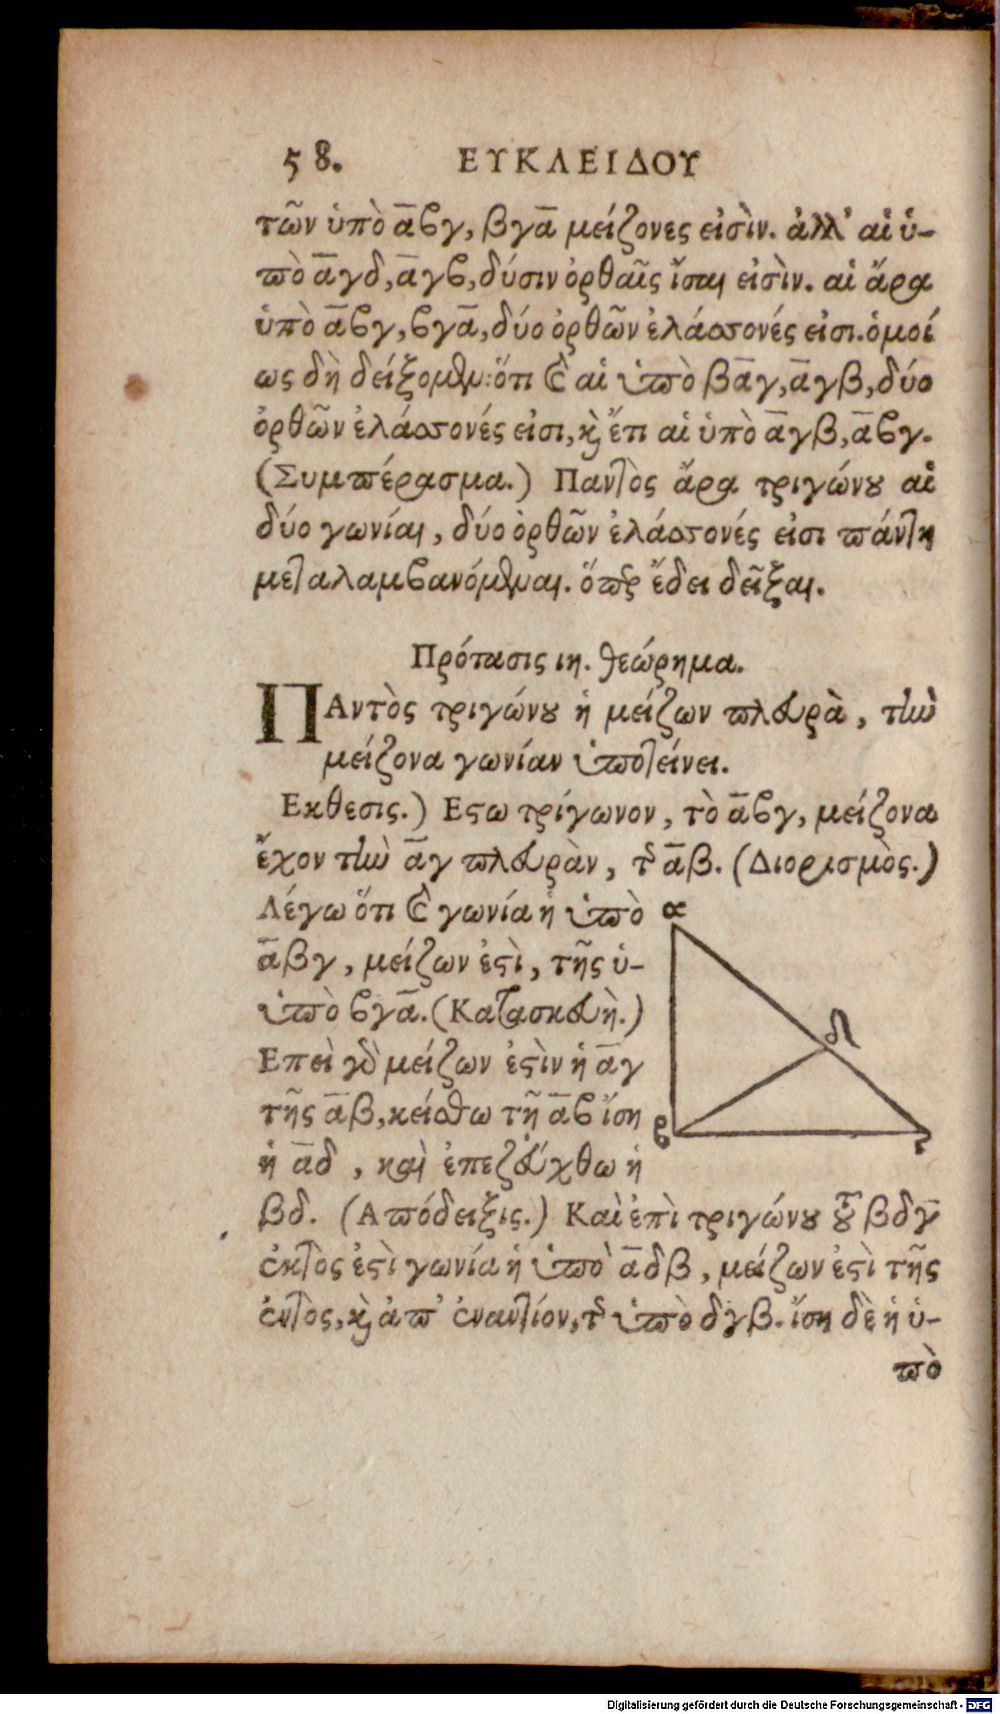 58. ΕΥΚΛΕΙΔΟΥ
τῶν ὑπὸ α̅ϐγ, βγα̅ μείζονες εἰσὶν. ἀλλ' αἱ ὑ-
πὸ α̅γδ, α̅γϐ, δύσιν ὀρθαῖς ἴσαι εἰσὶν. αἱ ἄρα
ὑπὸ α̅ϐγ, ϐγα̅, δύο ὀρθῶν ἐλάσσονές εἰσι. ὁμοί
ως δὴ δείξομεν: ὅτι καὶ αἱ ὑπὸ βα̅γ, α̅γβ, δύο
ὀρθῶν ἐλάσσονές εἰσι, καὶ ἔτι αἱ ὑπὸ α̅γβ, α̅ϐγ.
(Συμπέρασμα.) Παντὸς ἄρα τριγώνου αἱ
δύο γωνίαι, δύο ὀρθῶν ἐλάσσονές εἰσι πάντη
μεταλαμϐανόμεναι. ὅπερ ἔδει δεῖξαι.
Πρότασις ιη. θεώρημα.
ΠΑντὸς τριγώνου ἡ μείζων πλευρὰ, τὴν
μείζονα γωνίαν ὑποτείνει.
Εκθεσις.) Εστω τρίγωνον, τὸ α̅ϐγ, μείζονα
ἔχον τὴν α̅γ πλευρὰν, τῆς α̅β. (Διορισμὸς.)
Λέγω ὅτι καὶ γωνία ἡ ὑπὸ
α̅βγ, μείζων ἐστὶ, τῆς ὑ-
ὑπὸ ϐγα̅. (Κατασκευὴ.)
Επεὶ γὰρ μείζων ἐστὶν ἡ α̅γ
τῆς α̅β, κείσθω τῇ α̅ϐ ἴση
ἡ α̅δ, καὶ ἐπεζεύχθω ἡ
βδ. (Απόδειξις.) Καὶ ἐπὶ τριγώνου τοῦ βδγ̅
ἐκτὸς ἐστὶ γωνία ἡ ὑπὸ α̅δβ, μείζων ἐστὶ τῆς
ἐντὸς, καὶ ἀπ' ἐναντίον, τῆς ὑπὸ δγβ. ἴση δὲ ἡ ὑ-
πὸ
α
δ
ϐ
γ
Digitalisierung gefördert durch die Deutsche Forschungsgemeinschaft - DFG